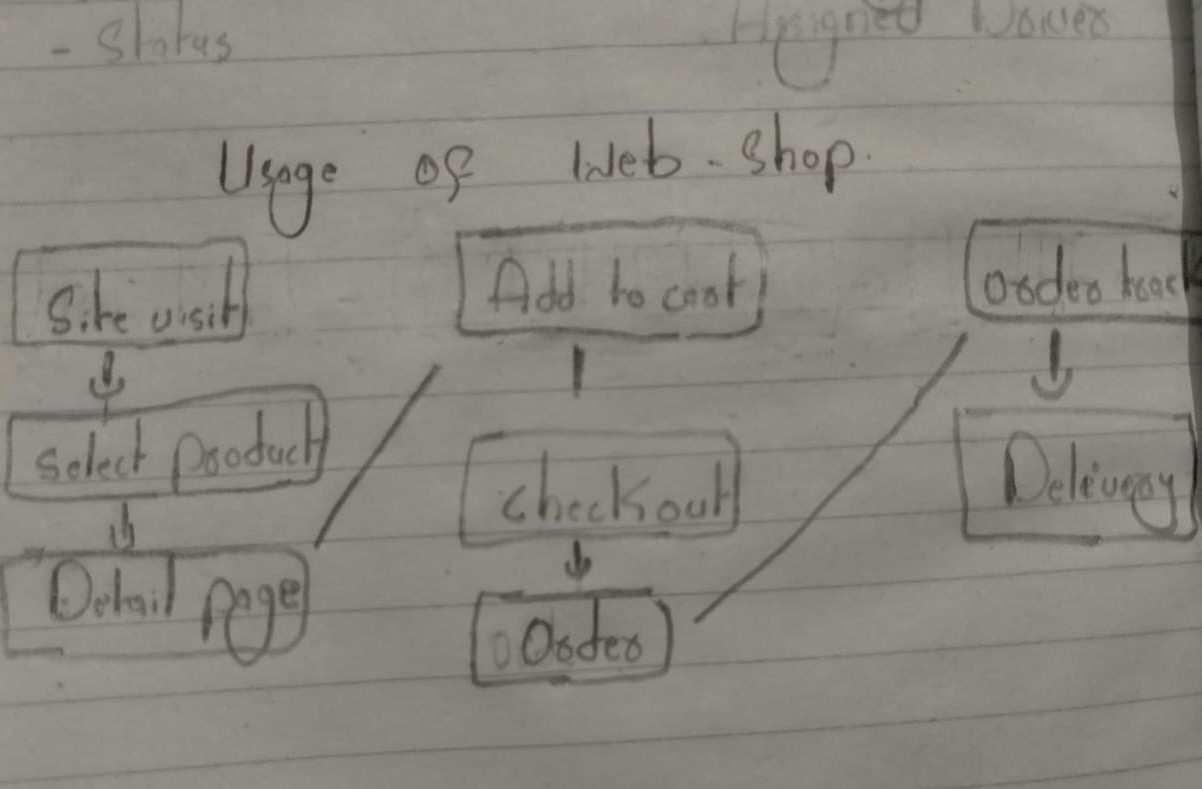 - Status
Assigned Driver
Usage of Web-shop.
Site visit
Select product
Detail page
Add to cart
Checkout
Order
Order trac
Delivery